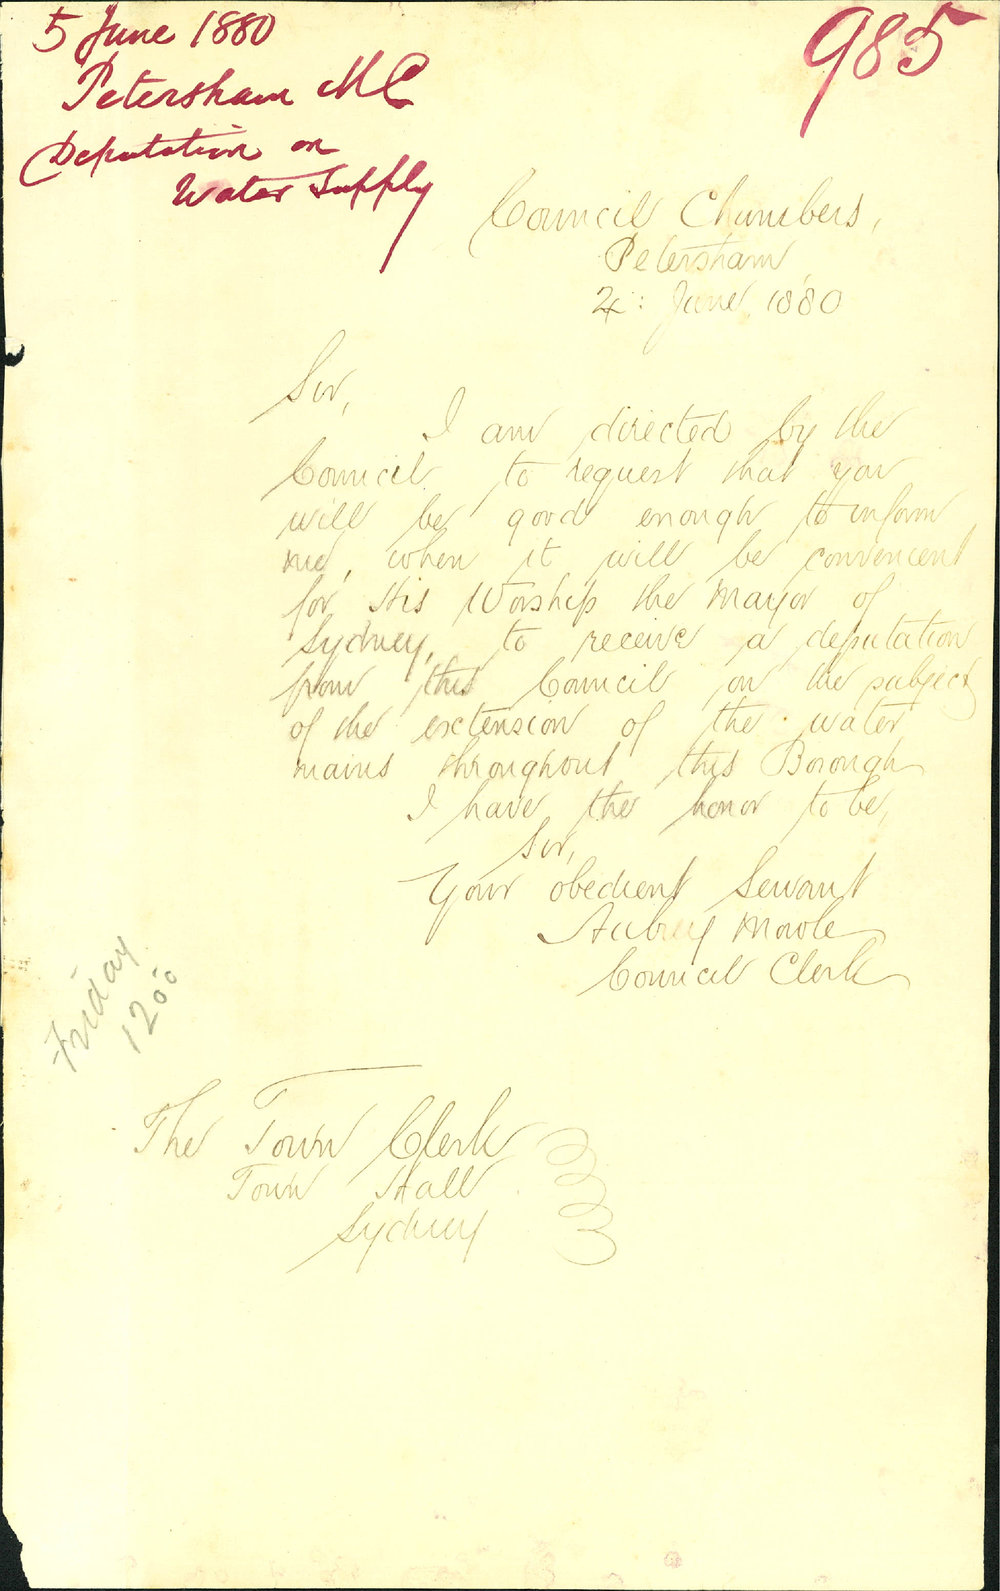 5 June 1880
Petersham MC
Deputation on
Water Supply
985
Council Chambers,
Petersham
4: June, 1880
Sir,
I am directed by the
Council to request that you
will be good enough to inform
me, when it will be convenient
for His Worship the Mayor of
Sydney, to receive a deputation
from this Council on the subject
of the extension of the water
mains throughout this Borough
I have the honor to be,
Sir,
Your obedient Servant
Aubrey Mowle
Council Clerk
Friday
12oo
The Town Clerk
Town Hall
Sydney